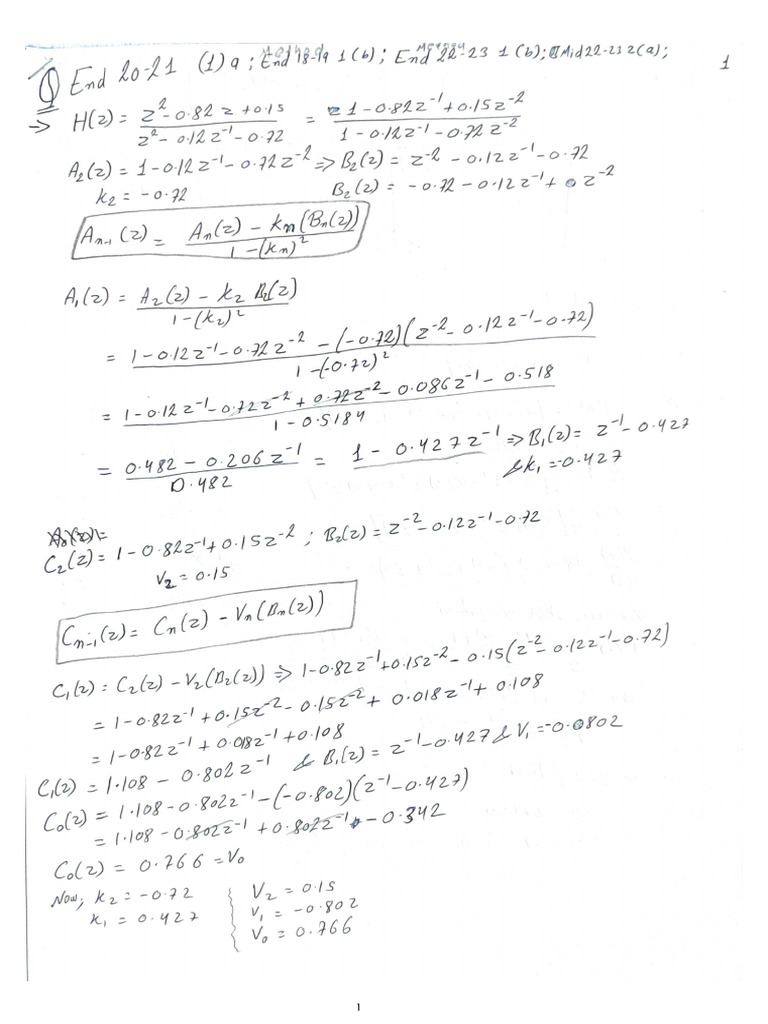 Q End 20-21 (1) a ; End 18-19 1(b) ; End 22-23 1(b) ; Mid 22-23 2(a) ;
1
→ H(z) = (z² - 0.82 z + 0.15) / (z² - 0.12 z⁻¹ - 0.72) = (1 - 0.82z⁻¹ + 0.15z⁻²) / (1 - 0.12z⁻¹ - 0.72 z⁻²)
A₂(z) = 1 - 0.12z⁻¹ - 0.72z⁻² ⇒ B₂(z) = z⁻² - 0.12z⁻¹ - 0.72
k₂ = -0.72 B₂(z) = -0.72 - 0.12z⁻¹ + z⁻²
Aₙ₋₁(z) = (Aₙ(z) - kₙ(Bₙ(z))) / (1 - (kₙ)²)
A₁(z) = (A₂(z) - k₂ B₂(z)) / (1 - (k₂)²)
= (1 - 0.12z⁻¹ - 0.72z⁻² - (-0.72)(z⁻² - 0.12z⁻¹ - 0.72)) / (1 - (-0.72)²)
= (1 - 0.12z⁻¹ - 0.72z⁻² + 0.72z⁻² - 0.086z⁻¹ - 0.518) / (1 - 0.5184)
= (0.482 - 0.206z⁻¹) / 0.482 = 1 - 0.427z⁻¹ ⇒ B₁(z) = z⁻¹ - 0.427
& k₁ = -0.427
C₂(z) = 1 - 0.82z⁻¹ + 0.15z⁻² ; B₂(z) = z⁻² - 0.12z⁻¹ - 0.72
V₂ = 0.15
Cₙ₋₁(z) = Cₙ(z) - Vₙ(Bₙ(z))
C₁(z) = C₂(z) - V₂(B₂(z)) ⇒ 1 - 0.82z⁻¹ + 0.15z⁻² - 0.15(z⁻² - 0.12z⁻¹ - 0.72)
= 1 - 0.82z⁻¹ + 0.15z⁻² - 0.15z⁻² + 0.018z⁻¹ + 0.108
= 1 - 0.82z⁻¹ + 0.018z⁻¹ + 0.108
C₁(z) = 1.108 - 0.802z⁻¹ & B₁(z) = z⁻¹ - 0.427 & V₁ = -0.0802
C₀(z) = 1.108 - 0.802z⁻¹ - (-0.802)(z⁻¹ - 0.427)
= 1.108 - 0.802z⁻¹ + 0.802z⁻¹ - 0.342
C₀(z) = 0.766 = V₀
Now; k₂ = -0.72 V₂ = 0.15
k₁ = 0.427 V₁ = -0.802
V₀ = 0.766
1